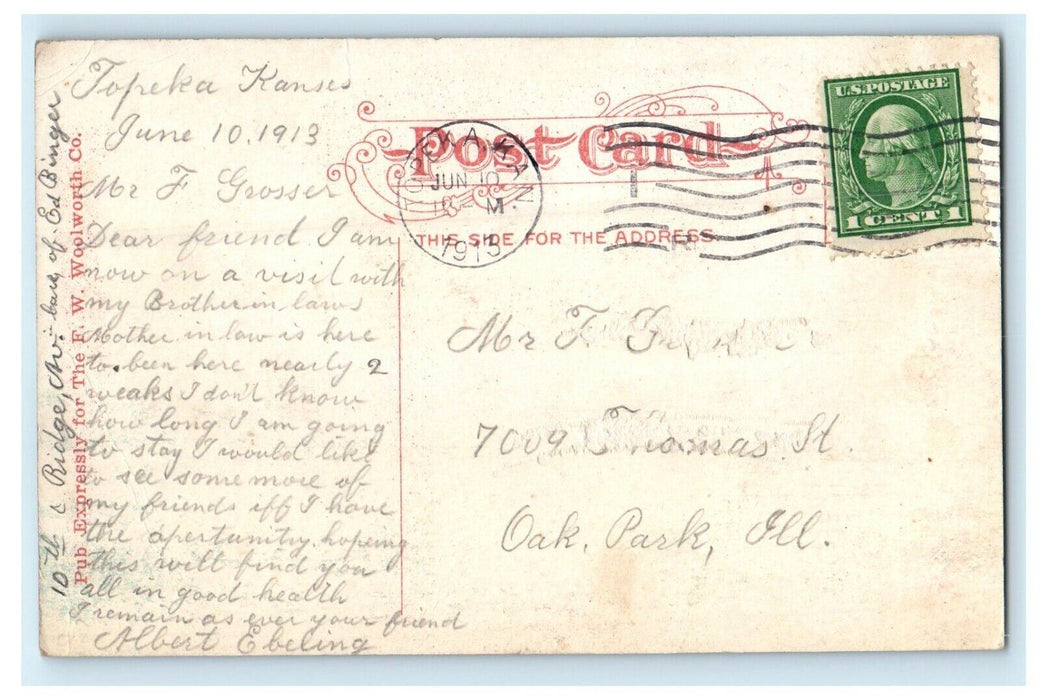 Topeka Kanses
June 10, 1913
Mr F Grosser
Dear friend I am
now on a visit with
my Brother in laws
Mother in law is here
to. been here nearly 2
weaks I don't know
how long I am going
to stay I would like
to see some more of
my friends iff I have
the apertunity. hopeing
this will find you
all in good health
I remain as ever your friend
Albert Ebeling
10th & Ridge, Av. of Ed Binger
Pub Expressly for The F. W. Woolworth Co.
Post Card
THIS SIDE FOR THE ADDRESS.
TOPEKA KAN
JUN 10
M
1913
U.S. POSTAGE
1 CENT 1
Mr F
7009 Thomas St.
Oak, Park, Ill.